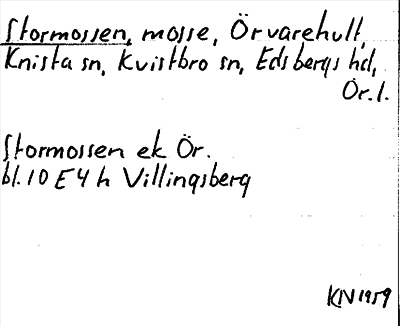 Stormossen, mosse, Örvarehult,
Knista sn, Kvistbro sn, Edsbergs hd,
Ör.l.
Stormossen ek Ör.
bl.10 E 4 h Villingsberg
KN 1959